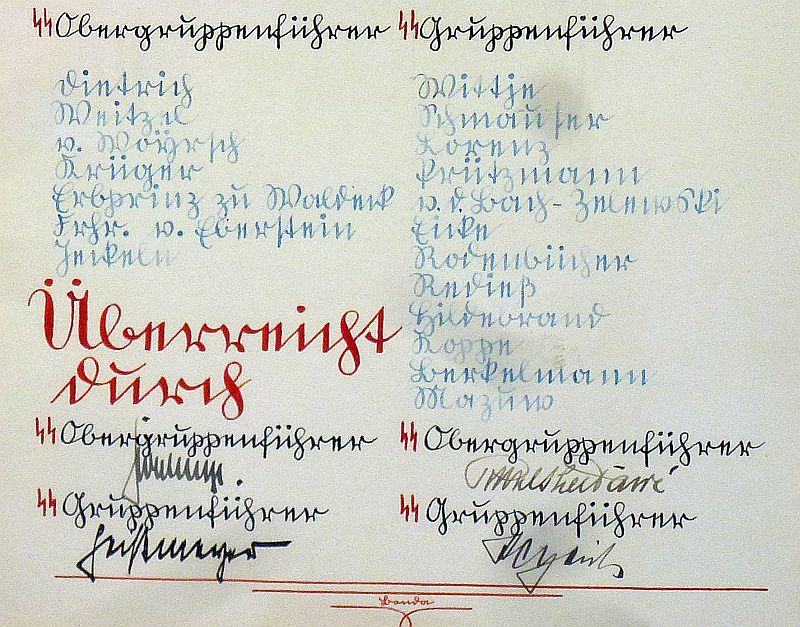 SS Obergruppenführer
Dietrich
Weitzel
v. Woyrsch
Krüger
Erbprinz zu Waldeck
Frhr. v. Eberstein
Jeckeln
SS Gruppenführer
Wittje
Schmauser
Lorenz
Prützmann
v. d. Bach-Zelewski
Eicke
Rodenbücher
Rediеß
Hildebrand
Koppe
Berkelmann
Mazuw
Überreicht
durch
SS Obergruppenführer
SS Gruppenführer
Heißmeyer
SS Obergruppenführer
SS Gruppenführer
Heydrich